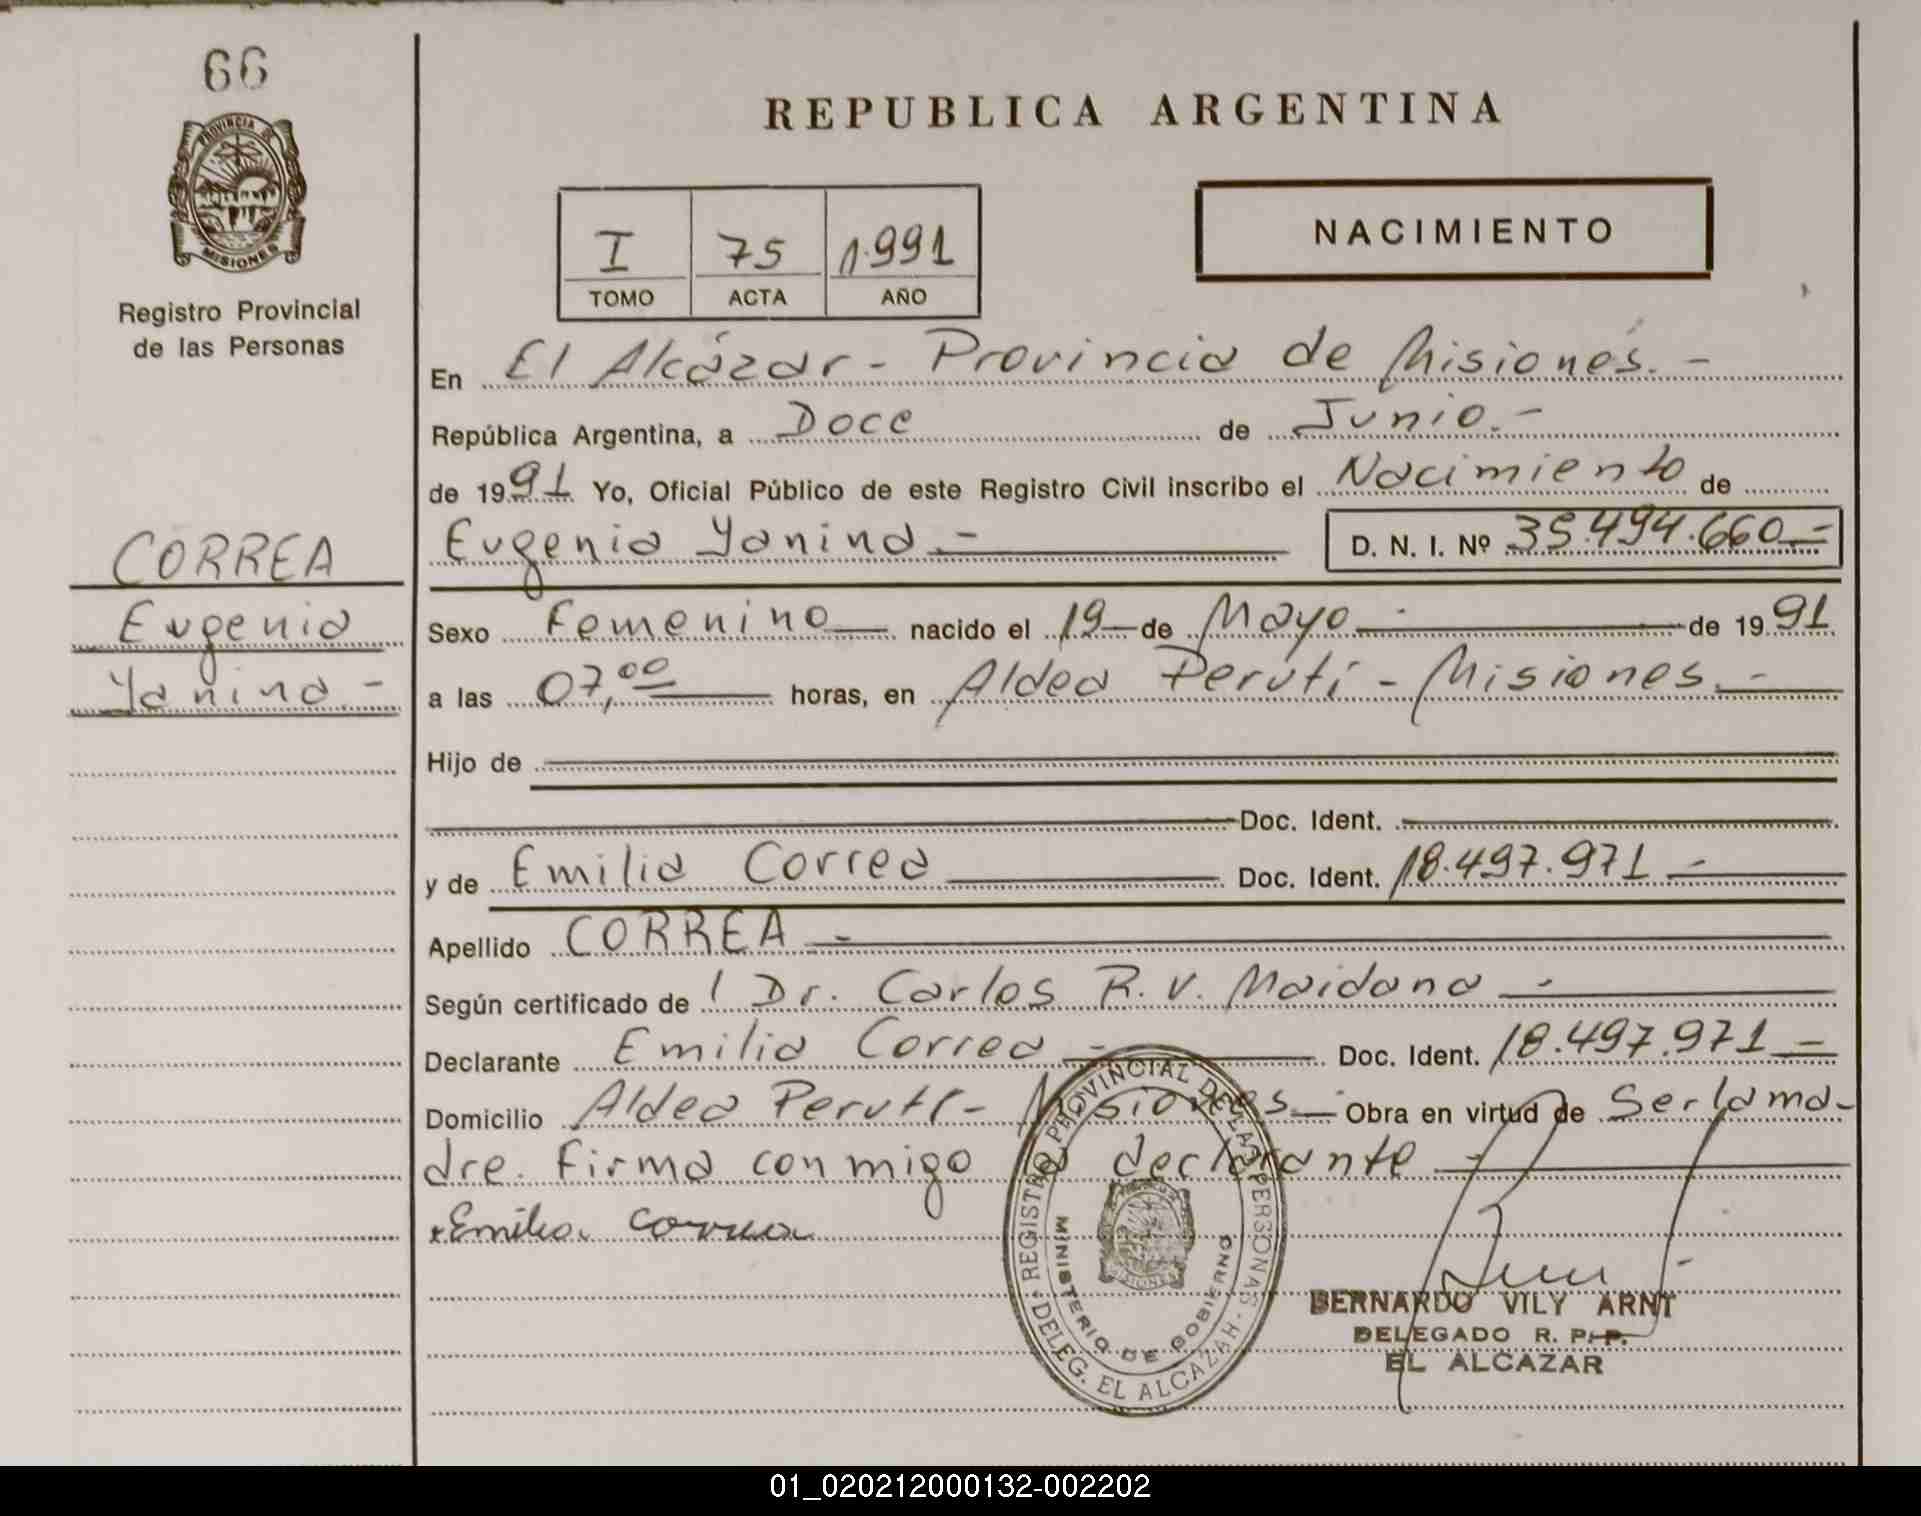 66
PROVINCIA DE
MISIONES
Registro Provincial
de las Personas
CORREA
Eugenia
Yanina -
REPUBLICA ARGENTINA
I 75 1.991
TOMO ACTA AÑO
NACIMIENTO
En El Alcázar - Provincia de Misiones. -
República Argentina, a Doce de Junio. -
de 1991 Yo, Oficial Público de este Registro Civil inscribo el Nacimiento de
Eugenia Yanina - D. N. I. Nº 35.494.660 -
Sexo Femenino nacido el 19 de Mayo - de 1991
a las 07,00 horas, en Aldea Perutí - Misiones. -
Hijo de
Doc. Ident.
y de Emilia Correa Doc. Ident. 18.497.971 -
Apellido CORREA -
Según certificado de Dr. Carlos R. V. Maidana -
Declarante Emilia Correa - Doc. Ident. 18.497.971 -
Domicilio Aldea Perutí - Misiones. - Obra en virtud de Ser la ma-
dre. Firma conmigo la declarante -
Emilia Correa
REGISTRO PROVINCIAL DE LAS PERSONAS
DELEG. EL ALCAZAR
MINISTERIO DE GOBIERNO
MISIONES
BERNARDO VILY ARNT
DELEGADO R. P. P.
EL ALCAZAR
01_020212000132-002202